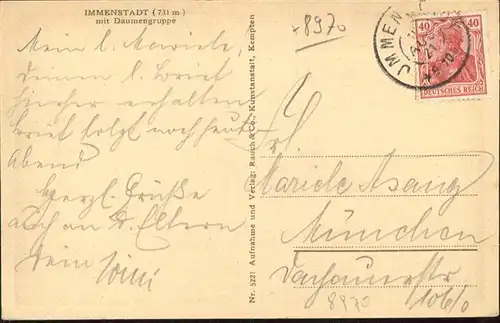 IMMENSTADT (731 m)
mit Daumengruppe
+8970
Mein l. Mariele,
Deinen l. Brief
hierher erhalten
Brief folgt noch heute
Abend
Herzl. Grüße
auch an d. Eltern
Dein
Nr. 5221 Aufnahme und Verlag: Rauch & Co., Kunstanstalt, Kempten
IMMEN
40 40
DEUTSCHES REICH
Frl.
Mariele Asang
München
Dachauerstr
8970